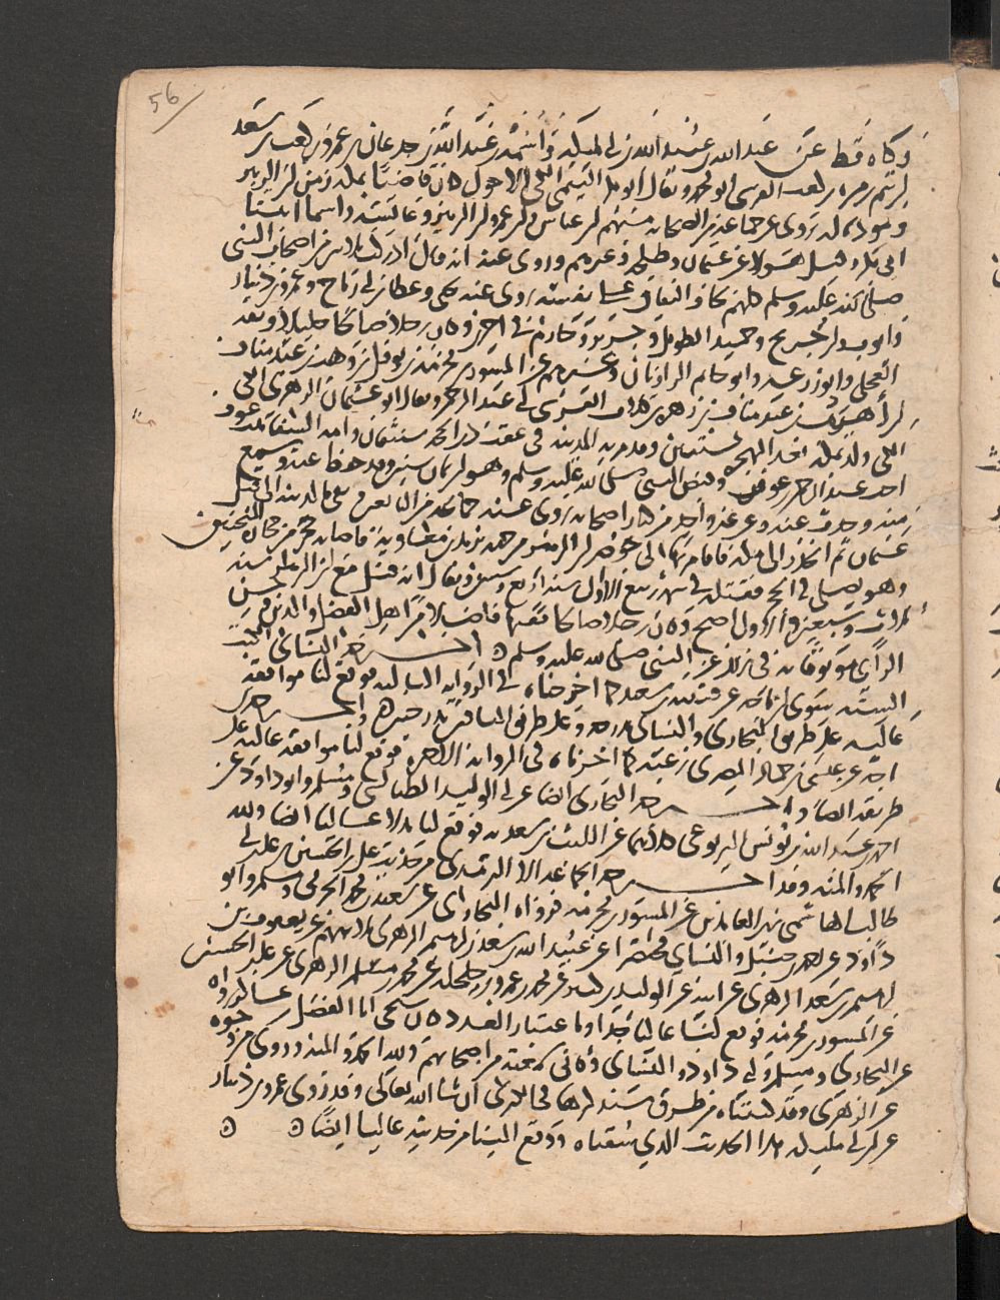 56
وكاه قط عن عبد الله بن عبيد الله بن أبي مليكة واسمه زهير بن عبد الله بن جدعان بن عمرو بن كعب بن سعد
بن تيم بن مرة بن كعب القرشي أبو محمد ويقال أبو بكر التيمي المكي الأحول كان قاضيا بمكة زمن ابن الزبير
ومؤذنا له روى عن جماعة من الصحابة منهم ابن عباس وابن عمر وابن الزبير وعائشة وأسماء ابنتا
أبي بكر وقيل مرسلا عن عثمان وطلحة وغيرهم وروى عنه أنه قال أدركت ثلاثين من أصحاب النبي
صلى الله عليه وسلم كلهم يخاف النفاق على نفسه روى عنه عطاء بن أبي رباح وعمرو بن دينار
وأيوب وابن جريج وحميد الطويل وجرير بن حازم في آخرين وكان رجلا صالحا جليلا وثقه
العجلي وأبو زرعة وأبو حاتم الرازيان وغيرهم عن المسور بن مخرمة بن نوفل بن وهيب بن عبد مناف
بن زهرة بن كلاب القرشي أبي عبد الرحمن ويقال أبو عثمان الزهري المكي
ولد بمكة بعد الهجرة بسنتين وقدم به المدينة في عقب ذي الحجة سنة ثمان وأمه الشفاء بنت عوف
أخت عبد الرحمن بن عوف وقبض النبي صلى الله عليه وسلم وهو ابن ثمان سنين وقد حفظ عنه وسمع
منه وحدث عنه وعن غير واحد من كبار أصحابه روى عنه جماعة من التابعين بقي بالمدينة إلى قتل
عثمان ثم انحدر إلى مكة فأقام بها إلى حوصر ابن الزبير من جهة يزيد بن معاوية فأصابه حجر من حجارة المنجنيق
وهو يصلي في الحجر فقتله في شهر ربيع الأول سنة أربع وستين ويقال أنه قتل مع ابن الزبير سنة
ثلاث وسبعين والأول أصح وكان رجلا صالحا فقيها فاضلا من أهل الفضل والدين حسن
الرأي عن النبي صلى الله عليه وسلم أخرجه الستة
الستة سوى ابن ماجه عن قتيبة بن سعيد كما أخرجناه في الرواية الثانية فوقع لنا موافقة
عالية على طريق البخاري والنسائي بدرجة وعلى طريق الباقين بدرجتين وأخرجه
ابن ماجه عن عيسى بن حماد المصري زغبة كما أخرجناه في الرواية الأخرى فوقع لنا موافقة عالية على
طريقه أيضا وأخرجه البخاري أيضا عن أبي الوليد الطيالسي ومسلم وأبو داود عن
أحمد بن عبد الله بن يونس اليربوعي كلاهما عن الليث بن سعد به فوقع لنا بدلا عاليا أيضا ولله
الحمد والمنة وقد أخرجه الجماعة إلا الترمذي من حديث علي بن الحسين بن علي بن أبي
طالب الهاشمي زين العابدين عن المسور بن مخرمة فرواه البخاري عن سعيد بن محمد الجرمي ومسلم وأبو
داود عن أحمد بن حنبل والنسائي مختصرا عن عبيد الله بن سعد بن إبراهيم الزهري ثلاثتهم عن يعقوب بن
إبراهيم بن سعد الزهري عن أبيه عن الوليد بن كثير عن محمد بن عمرو بن حلحلة عن محمد بن مسلم الزهري عن علي بن الحسين
عن المسور بن مخرمة فوقع لنا عاليا جدا وباعتبار العدد كأن شيخي أبا الفضل بن عساكر رواه
عن البخاري ومسلم وأبي داود والنسائي وكأني سمعته من أصحابهم ولله الحمد والمنة وروي من وجوه
عن الزهري وقد كتبناه من طرق مسند إن شاء الله تعالى وقد روى عمرو بن دينار
عن ابن أبي مليكة هذا الحديث الذي سقناه ووقع إلينا من حديثه عاليا أيضا